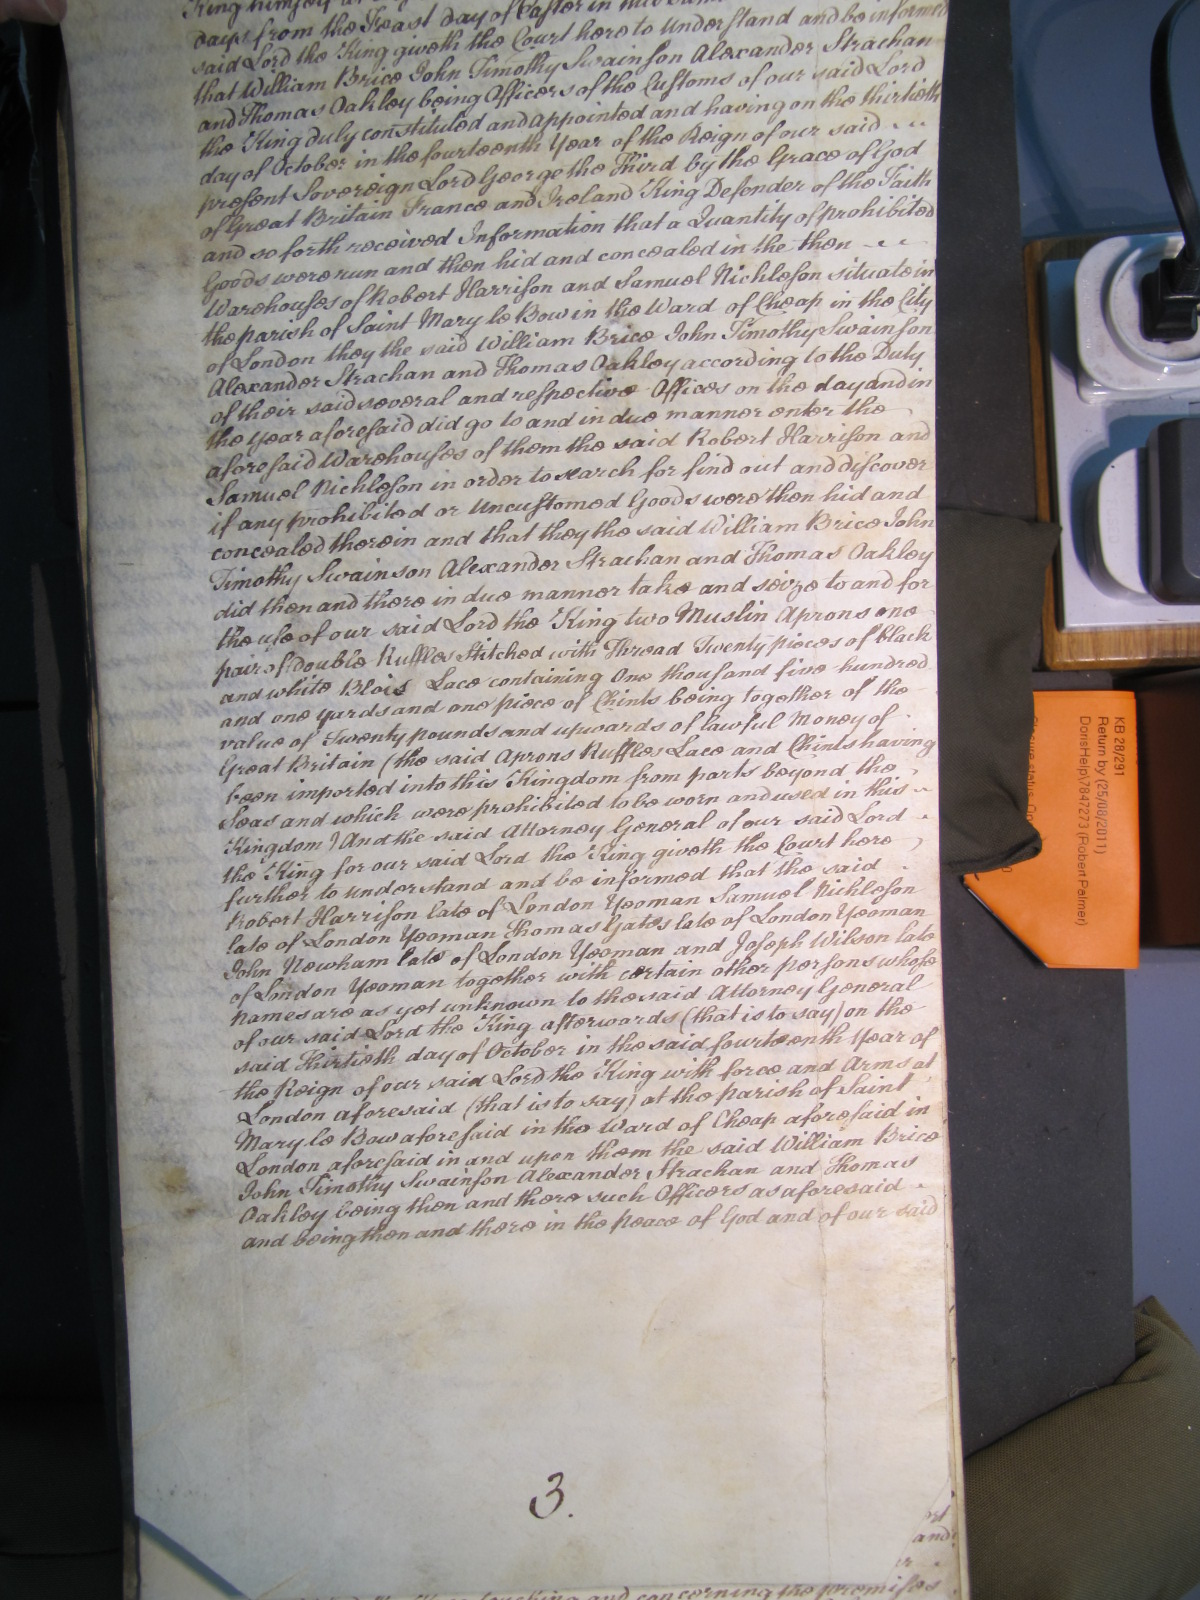 King himself
days from the Feast day of Easter in
said Lord the King giveth the Court here to understand and be informed
that William Brice John Timothy Swainson Alexander Strachan
and Thomas Oakley being Officers of the Customs of our said Lord
the King duly constituted and appointed and having on the thirtieth
day of October in the fourteenth Year of the Reign of our said
present Sovereign Lord George the Third by the Grace of God
of Great Britain France and Ireland King Defender of the Faith
and so forth received Information that a Quantity of prohibited
Goods were run and then hid and concealed in the then
Warehouses of Robert Harrison and Samuel Nickleson situate in
the parish of Saint Mary le Bow in the Ward of Cheap in the City
of London they the said William Brice John Timothy Swainson
Alexander Strachan and Thomas Oakley according to the Duty
of their said several and respective Offices on the day and in
the year aforesaid did go to and in due manner enter the
aforesaid Warehouses of them the said Robert Harrison and
Samuel Nickleson in order to search for find out and discover
if any prohibited or Uncustomed Goods were then hid and
concealed therein and that they the said William Brice John
Timothy Swainson Alexander Strachan and Thomas Oakley
did then and there in due manner take and seize to and for
the use of our said Lord the King two Muslin Aprons one
pair of double Ruffles stitched with Thread Twenty pieces of black
and white Blois Lace containing One thousand five hundred
and one yards and one piece of Chints being together of the
value of Twenty pounds and upwards of lawful Money of
Great Britain (the said Aprons Ruffles Lace and Chints having
been imported into this Kingdom from parts beyond the
Seas and which were prohibited to be worn and used in this
Kingdom) And the said Attorney General of our said Lord
the King for our said Lord the King giveth the Court here
further to understand and be informed that the said
Robert Harrison late of London Yeoman Samuel Nickleson
late of London Yeoman Thomas Gates late of London Yeoman
John Newham late of London Yeoman and Joseph Wilson late
of London Yeoman together with certain other persons whose
names are as yet unknown to the said Attorney General
of our said Lord the King afterwards (that is to say) on the
said Thirtieth day of October in the said fourteenth Year of
the Reign of our said Lord the King with force and Arms at
London aforesaid (that is to say) at the parish of Saint
Mary le Bow aforesaid in the Ward of Cheap aforesaid in
London aforesaid in and upon them the said William Brice
John Timothy Swainson Alexander Strachan and Thomas
Oakley being then and there such Officers as aforesaid
and being then and there in the peace of God and of our said
3.
and
and concerning the premises
KB 28/291
Return by (25/08/2011)
DorisHelp\7847273 (Robert Palmer)